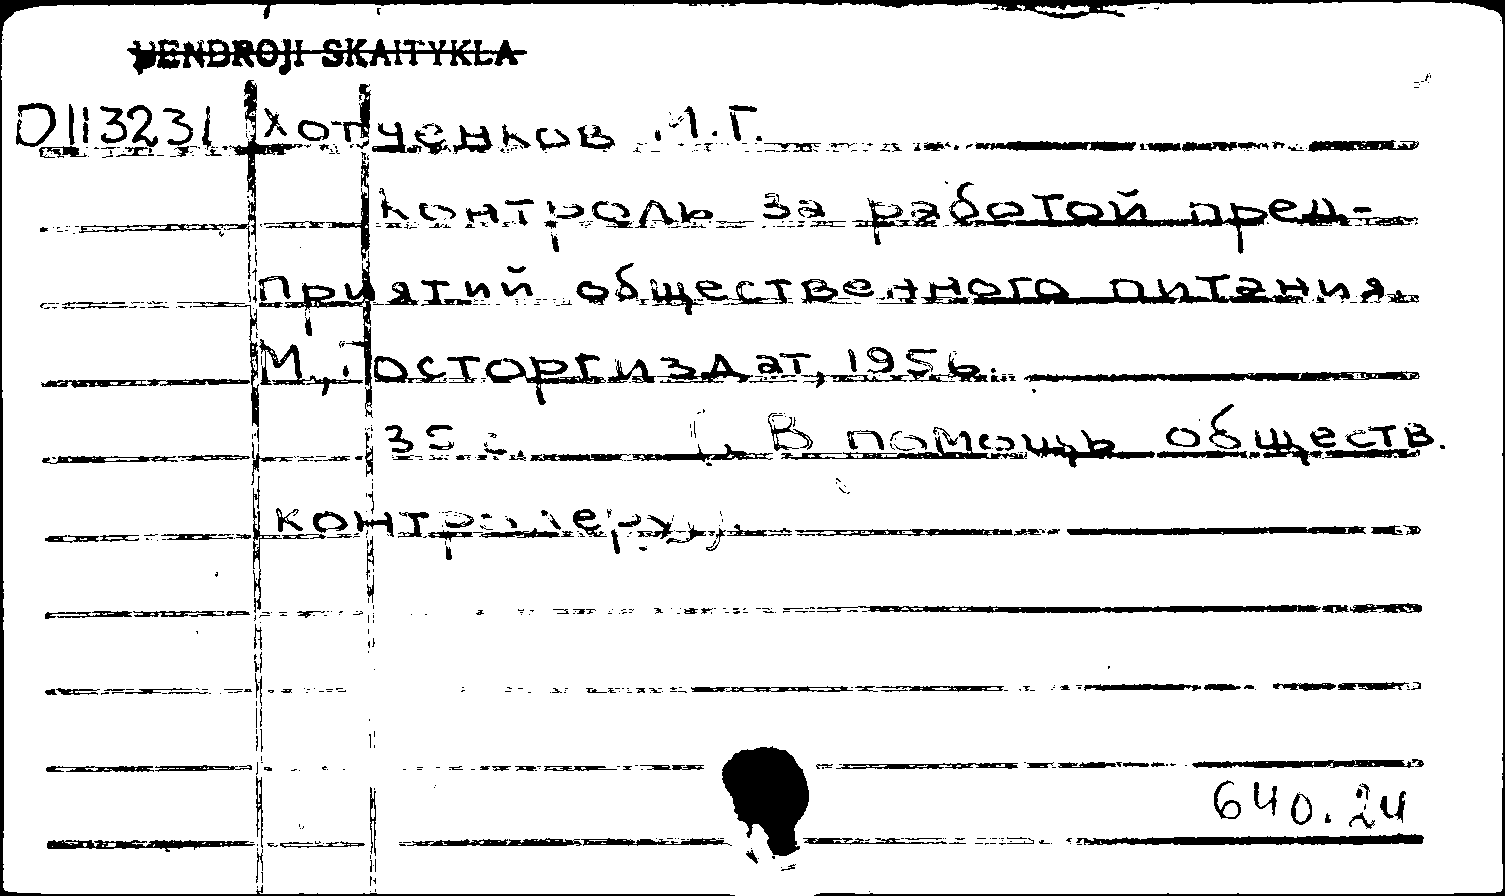 BENDROJI SKAITYKLA
D113231 Хотченков И.Г.
Контроль за работой пред-
приятий общественного питания.
М., Госторгиздат, 1956.
35 с. (В помощь обществ.
контролеру).
640.24